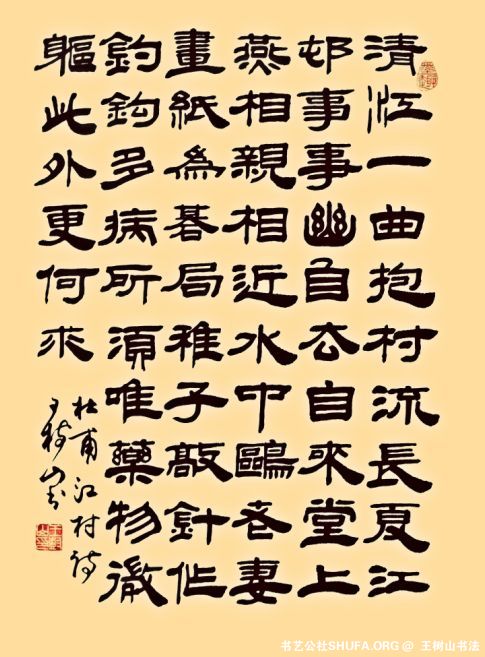 清江一曲抱村流長夏江
邨事事幽自去自來堂上
燕相親相近水中鷗老妻
畫紙為碁局稚子敲針作
釣鈎多病所湏唯藥物微
軀此外更何求
杜甫江村詩
王樹山書
书艺公社SHUFA.ORG @ 王树山书法